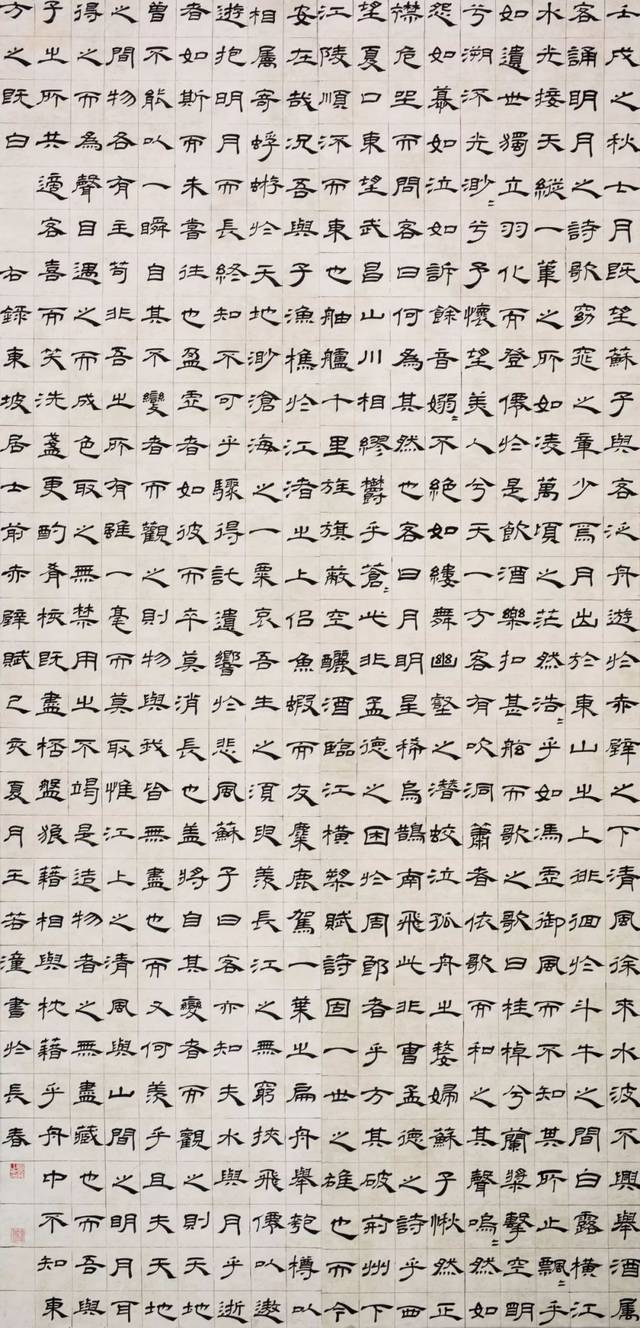 壬戌之秋七月既望蘇子與客泛舟遊於赤壁之下清風徐來水波不興舉酒屬
客誦明月之詩歌窈窕之章少焉月出於東山之上徘徊於斗牛之間白露橫江
水光接天縱一葦之所如凌萬頃之茫然浩=乎如馮虛御風而不知其所止飄=乎
如遺世獨立羽化而登僊於是飲酒樂扣甚舷而歌之歌曰桂棹兮蘭槳擊空明
兮泝流光渺=兮予懷望美人兮天一方客有吹洞簫者依歌而和之其聲嗚=然如
怨如慕如泣如訴餘音嫋=不絕如縷舞幽壑之潛蛟泣孤舟之嫠婦蘇子愀然正
襟危坐而問客曰何為其然也客曰月明星稀烏鵲南飛此非曹孟德之詩乎西
望夏口東望武昌山川相繆鬱乎蒼=此非孟德之困於周郎者乎方其破荊州下
江陵順流而東也舳艫十里旌旗蔽空釃酒臨江橫槊賦詩固一世之雄也而今
安在哉況吾與子漁樵於江渚之上侶魚蝦而友麋鹿駕一葉之扁舟舉匏樽以
相屬寄蜉蝣於天地渺滄海之一粟哀吾生之須臾羨長江之無窮挾飛僊以遨
遊抱明月而長終知不可乎驟得託遺響於悲風蘇子曰客亦知夫水與月乎逝
者如斯而未嘗往也盈虛者如彼而卒莫消長也蓋將自其變者而觀之則天地
曾不能以一瞬自其不變者而觀之則物與我皆無盡也而又何羨乎且夫天地
之間物各有主苟非吾之所有雖一毫而莫取惟江上之清風與山間之明月耳
得之而為聲目遇之而成色取之無禁用之不竭是造物者之無盡藏也而吾與
子之所共適客喜而笑洗盞更酌肴核既盡杯盤狼藉相與枕藉乎舟中不知東
方之既白 右錄東坡居士前赤壁賦己亥夏月王若潼書於長春